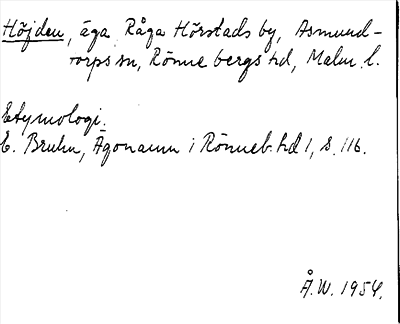 Höjden, äga, Råga Hörstads by, Asmund-
torps sn, Rönnebergs hd, Malm. l.
Etymologi.
E. Bruhn, Ägonamn i Rönneb. hd 1, s. 116.
Å.W. 1954.